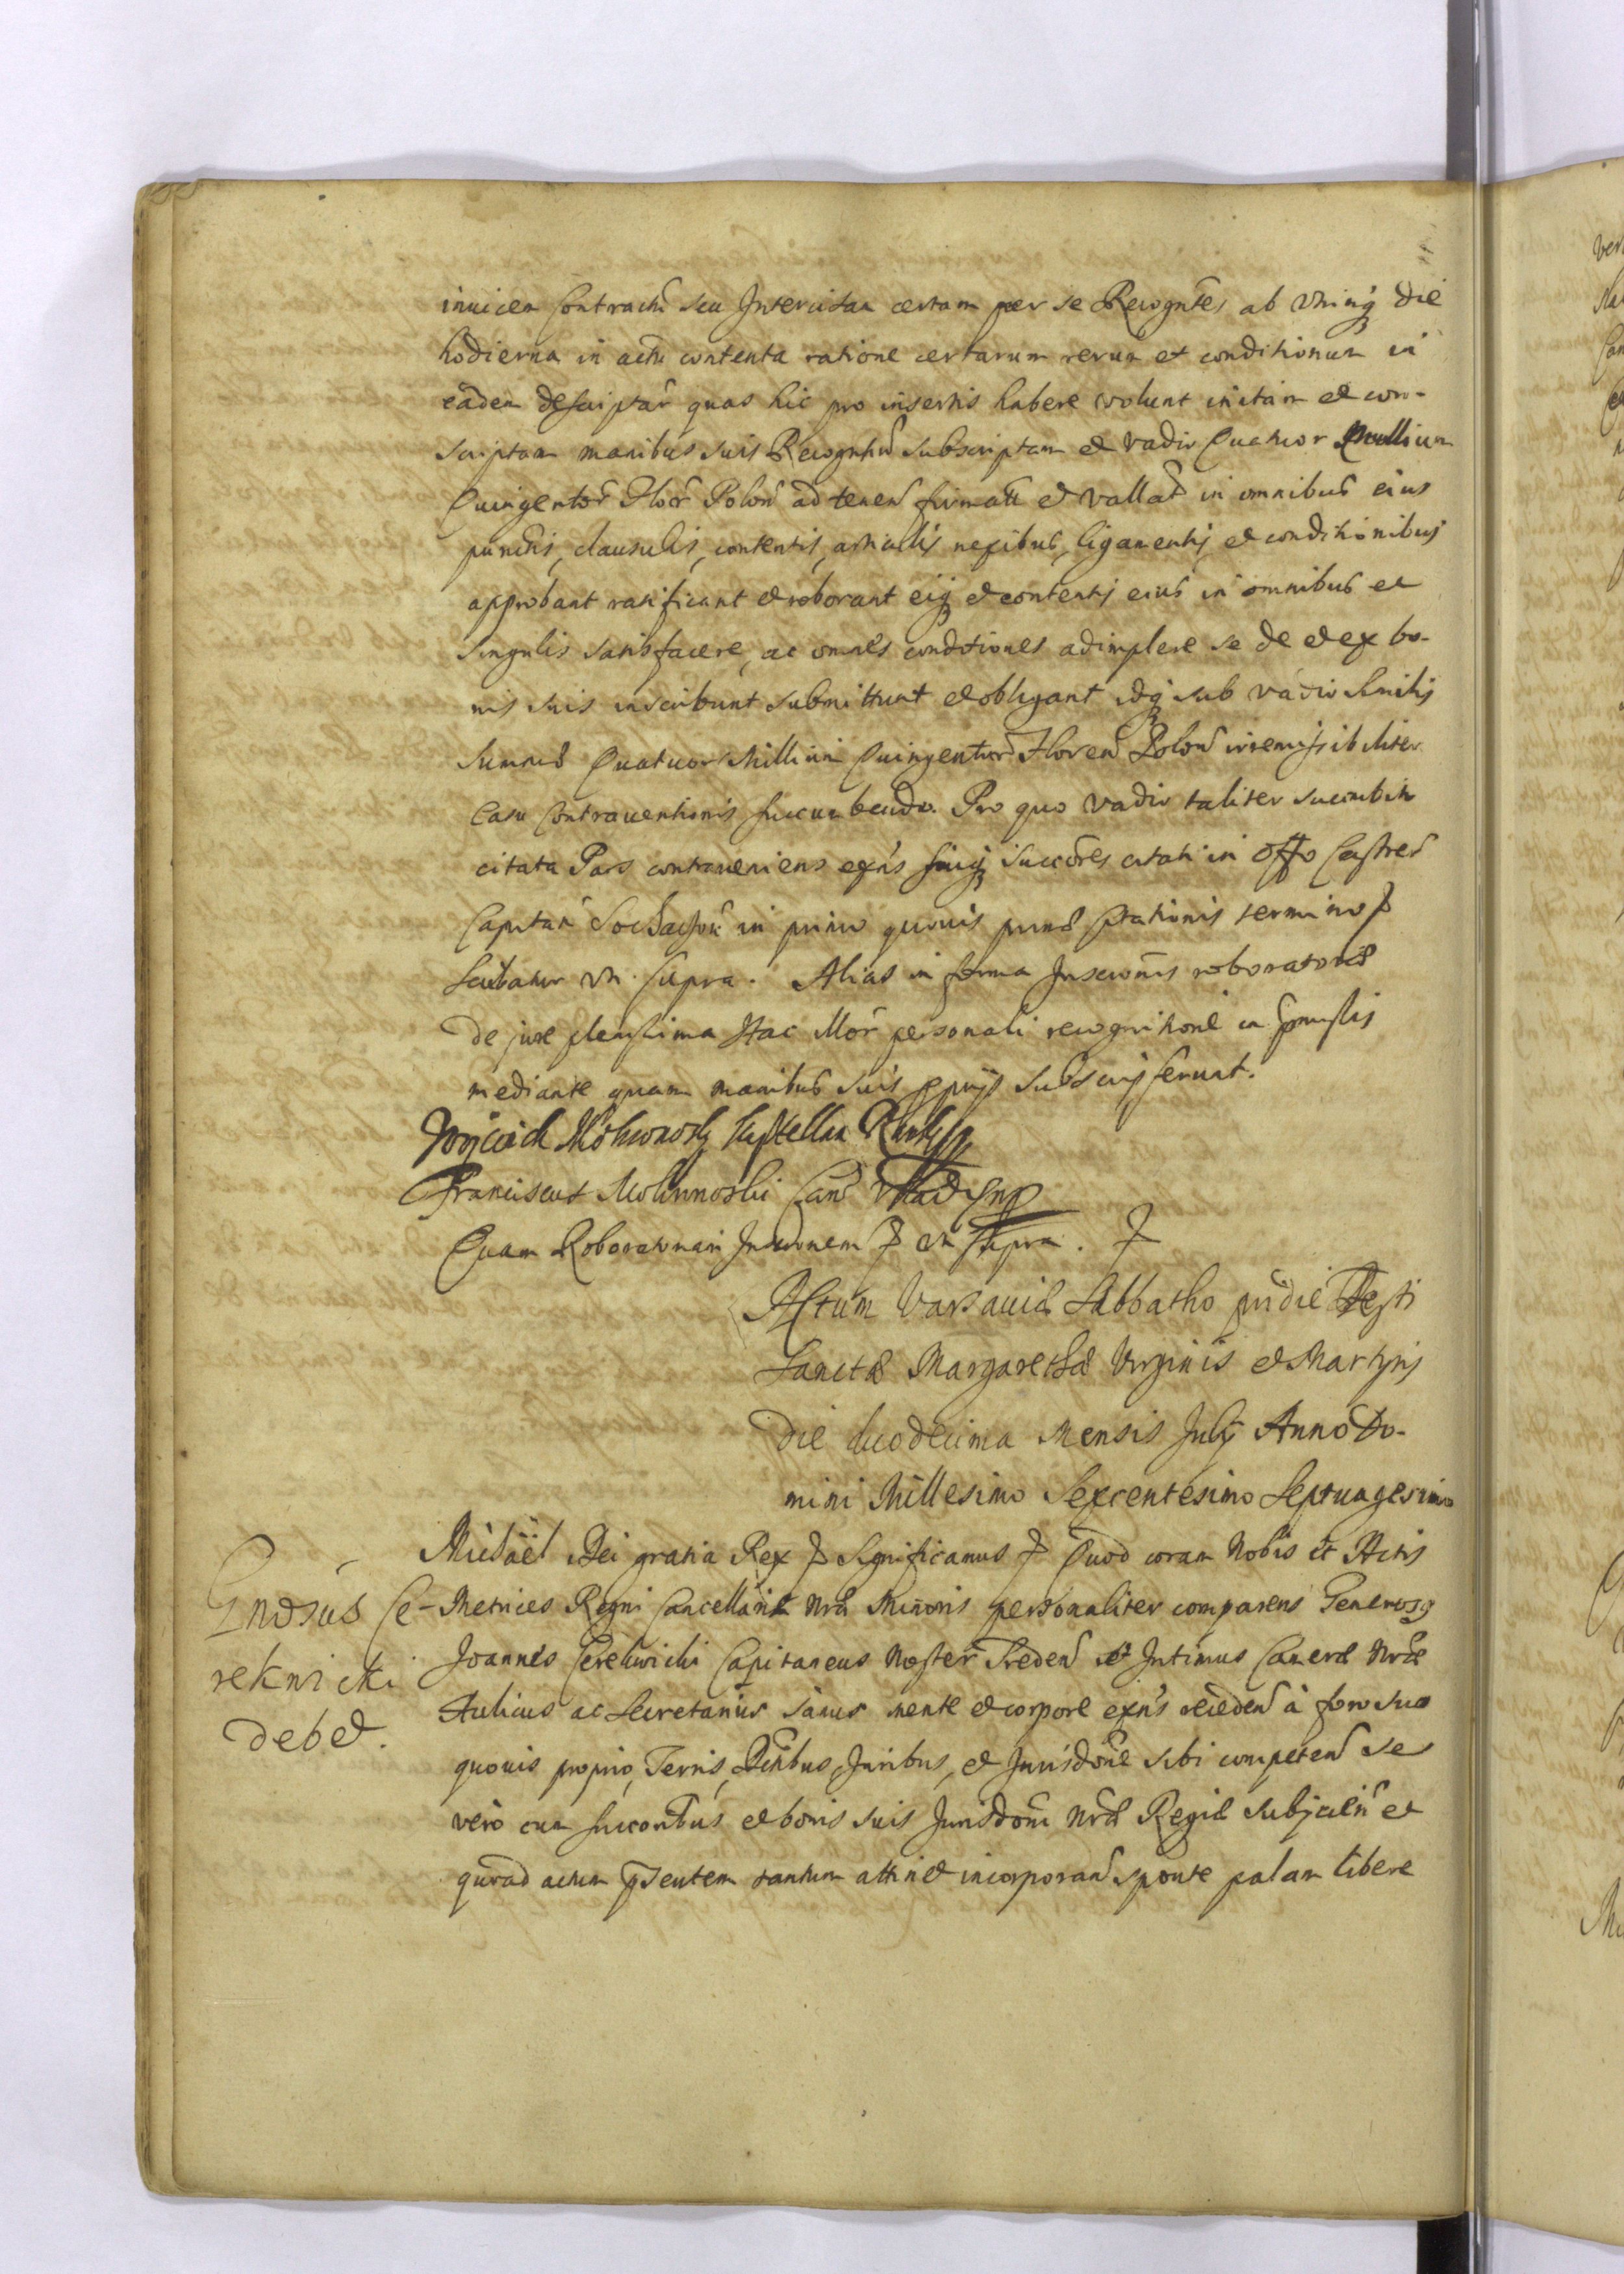 inuicem Contractũ seu Intercisam certam per se Recogñtes ab vtrinq̃ die
hodierna in actu contenta ratione certarum rerum et conditionum in
eadem descriptar̃ quas hic pro insertis habere volunt initam et con-
scriptam manibus suis Recogñtiũ subscriptam et vadio Quatuor Millium
Quingentor̃ Flor̃ Polon̄ ad tenen̄ firmatã et vallat̃ in omnibus eius
punctis, clausulis, contentis, articulis nexibus, ligamentis, et conditionibus
approbant ratificant et roborant eiq̃ et contentis eius in omnibus et
singulis satisfacere, ac omnes conditiones adimplere se de et ex bo-
nis suis inscribunt submittunt et obligant idq̃ sub vadio similis
summæ Quatuor Millium Quingentor̃ Floren̄ Polon̄ irremissibiliter
casu contrauentionis succumbendo. Pro quo vadio taliter succumbito
citata Pars contraueniens exñs suiq̃ succõres citati in Offo Castren̄
Capitan̄ Sochaczou in primo quouis primæ citationis termino ꝑ
scribatur vt supra. Alias in forma Inscrõnis roboratoriæ
de jure plenissima Hac Mõr personali recognitione in præmissis
mediante quam manibus suis ꝓprijs subscripserunt.
Wojciech Mokronosky Kasztellan
Franciscus Mokronoski Can̄
Quam Roboratoriam Inscrõnem ꝑ vt supra. ꝑ
Actum Varsauiæ Sabbatho pridie Festi
Sanctæ Margarethæ Virginis et Martyris
Die duodecima Mensis July Anno Do-
mini Millesimo Sexcentesimo Septuagesimo
Michaël Dei gratia Rex ꝑ Significamus ꝑ Quod coram Nobis et Actis
Metrices Regni Cancellariæ Nrã Minoris personaliter comparens Generosq
Joannes Cerekwicki Capitaneus Noster Sreden̄ et Intimus Cameræ Nrãe
Aulicus ac Secretarius sanus mente et corpore exñs recedens à foro suo
quouis proprio, Terris, Ditibus, Juribus, et Jurisdõne sibi competen̄ se
vero cum succoribus et bonis suis Jurisdõni Nrãe Regiæ subjicien̄ et
quoad actum ꝓsentem tantum attinet incorporan̄ sponte palam libere
Gnosus Ce-
rekwicki
debet.